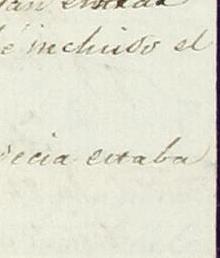 entrar
é inchuso el
decia estaba